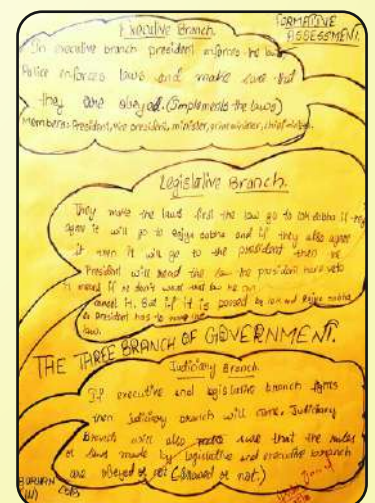 Executive Branch
FORMATIVE
ASSESSMENT.
In executive branch president enforces the law
Police enforces laws and make sure that
they are obeyed. (Implements the laws)
Members: President, vice president, minister, prime minister, chief
Legislative Branch.
They make the laws first the law go to lok sabha if they
agree it will go to Rajya sabha and if they also agree
it then it will go to the president then
President will read the law the president have veto
it means if he don't want that law he can
cancel it. But if it is passed by lok and Rajya sabha
President has to
law.
THE THREE BRANCH OF GOVERNMENT.
Judiciary Branch.
If executive and legislative branch fights
then judiciary branch will come. Judiciary
branch will also make sure that the rules
or laws made by legislative and executive branch
are obeyed or not (followed or not.)